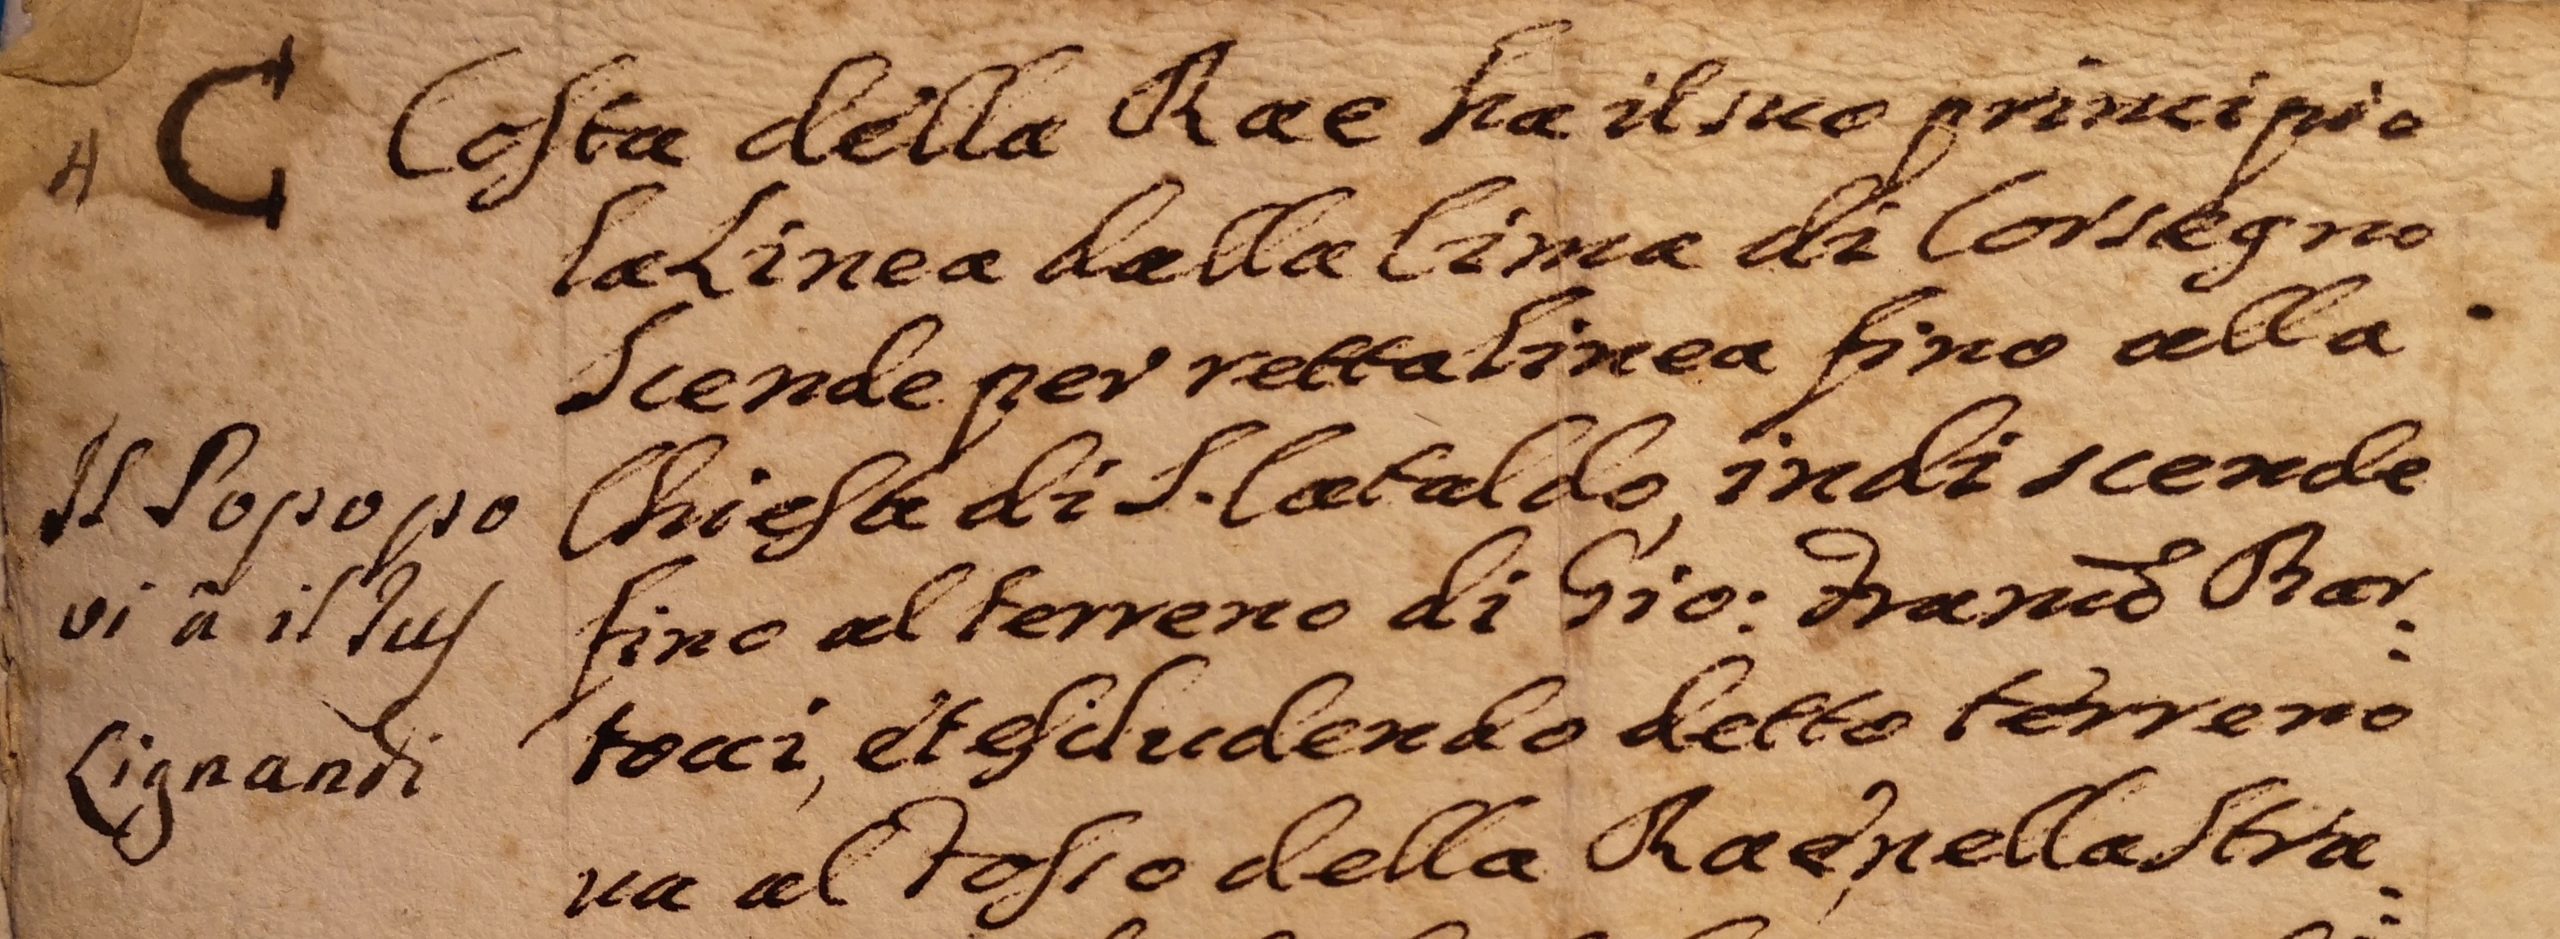 A C Costa della Rae ha il suo principio
la Linea dalla Cima di Corsegno
Scende per retta Linea fino alla
Chiesa di S. Cataldo, indi scende
fino al terreno di Gio: Franco Bar:
tocci, et escludendo detto terreno
va al Fosso della Rae, nella Stra:
Il Popopo
vi ã il Jus
Lignandi